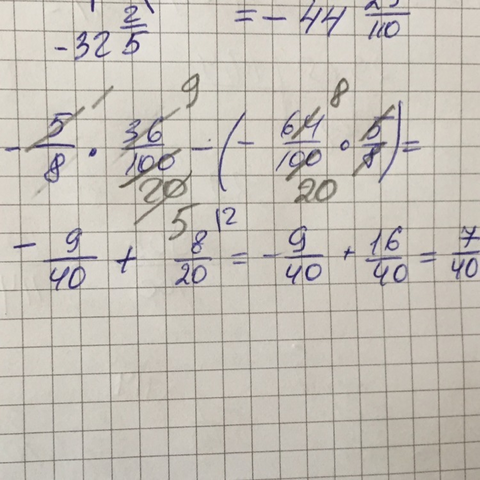 -32 2/5 = -44 23/110
1 9 8
- 5/8 · 36/100 - (- 64/100 · 5/8) =
20 20
5 12
- 9/40 + 8/20 = - 9/40 + 16/40 = 7/40